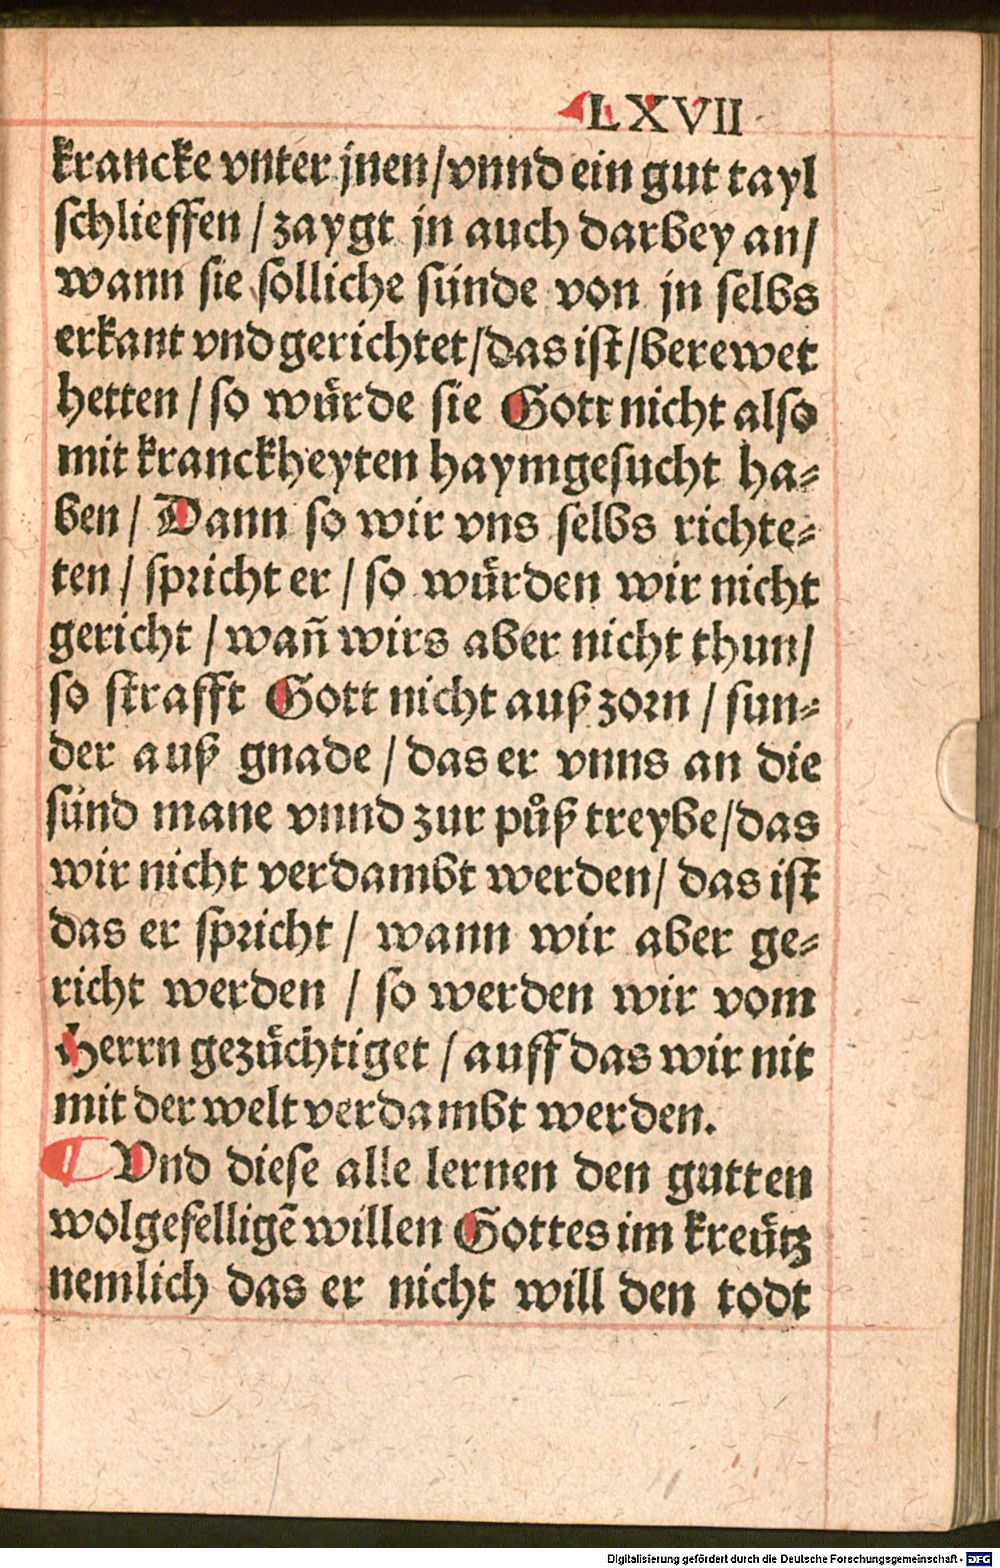 LXVII
krancke vnter jnen/vnnd ein gut tayl
schlieffen / zaygt jn auch darbey an/
wann sie sölliche sünde von jn selbs
erkant vnd gerichtet/das ist/berewet
hetten / so wuͤrde sie Gott nicht also
mit kranckheyten haymgesucht ha⸗
ben / Dann so wir vns selbs richte⸗
ten / spricht er / so wuͤrden wir nicht
gericht / wañ wirs aber nicht thun/
so strafft Gott nicht auß zorn / sun⸗
der auß gnade / das er vnns an die
sünd mane vnnd zur půß treybe/das
wir nicht verdambt werden/ das ist
das er spricht / wann wir aber ge⸗
richt werden / so werden wir vom
Herrn gezuͤchtiget / auff das wir nit
mit der welt verdambt werden.
¶ Vnd diese alle lernen den gutten
wolgefelligẽ willen Gottes im kreuͤtz
nemlich das er nicht will den todt
Digitalisierung gefördert durch die Deutsche Forschungsgemeinschaft - DFG